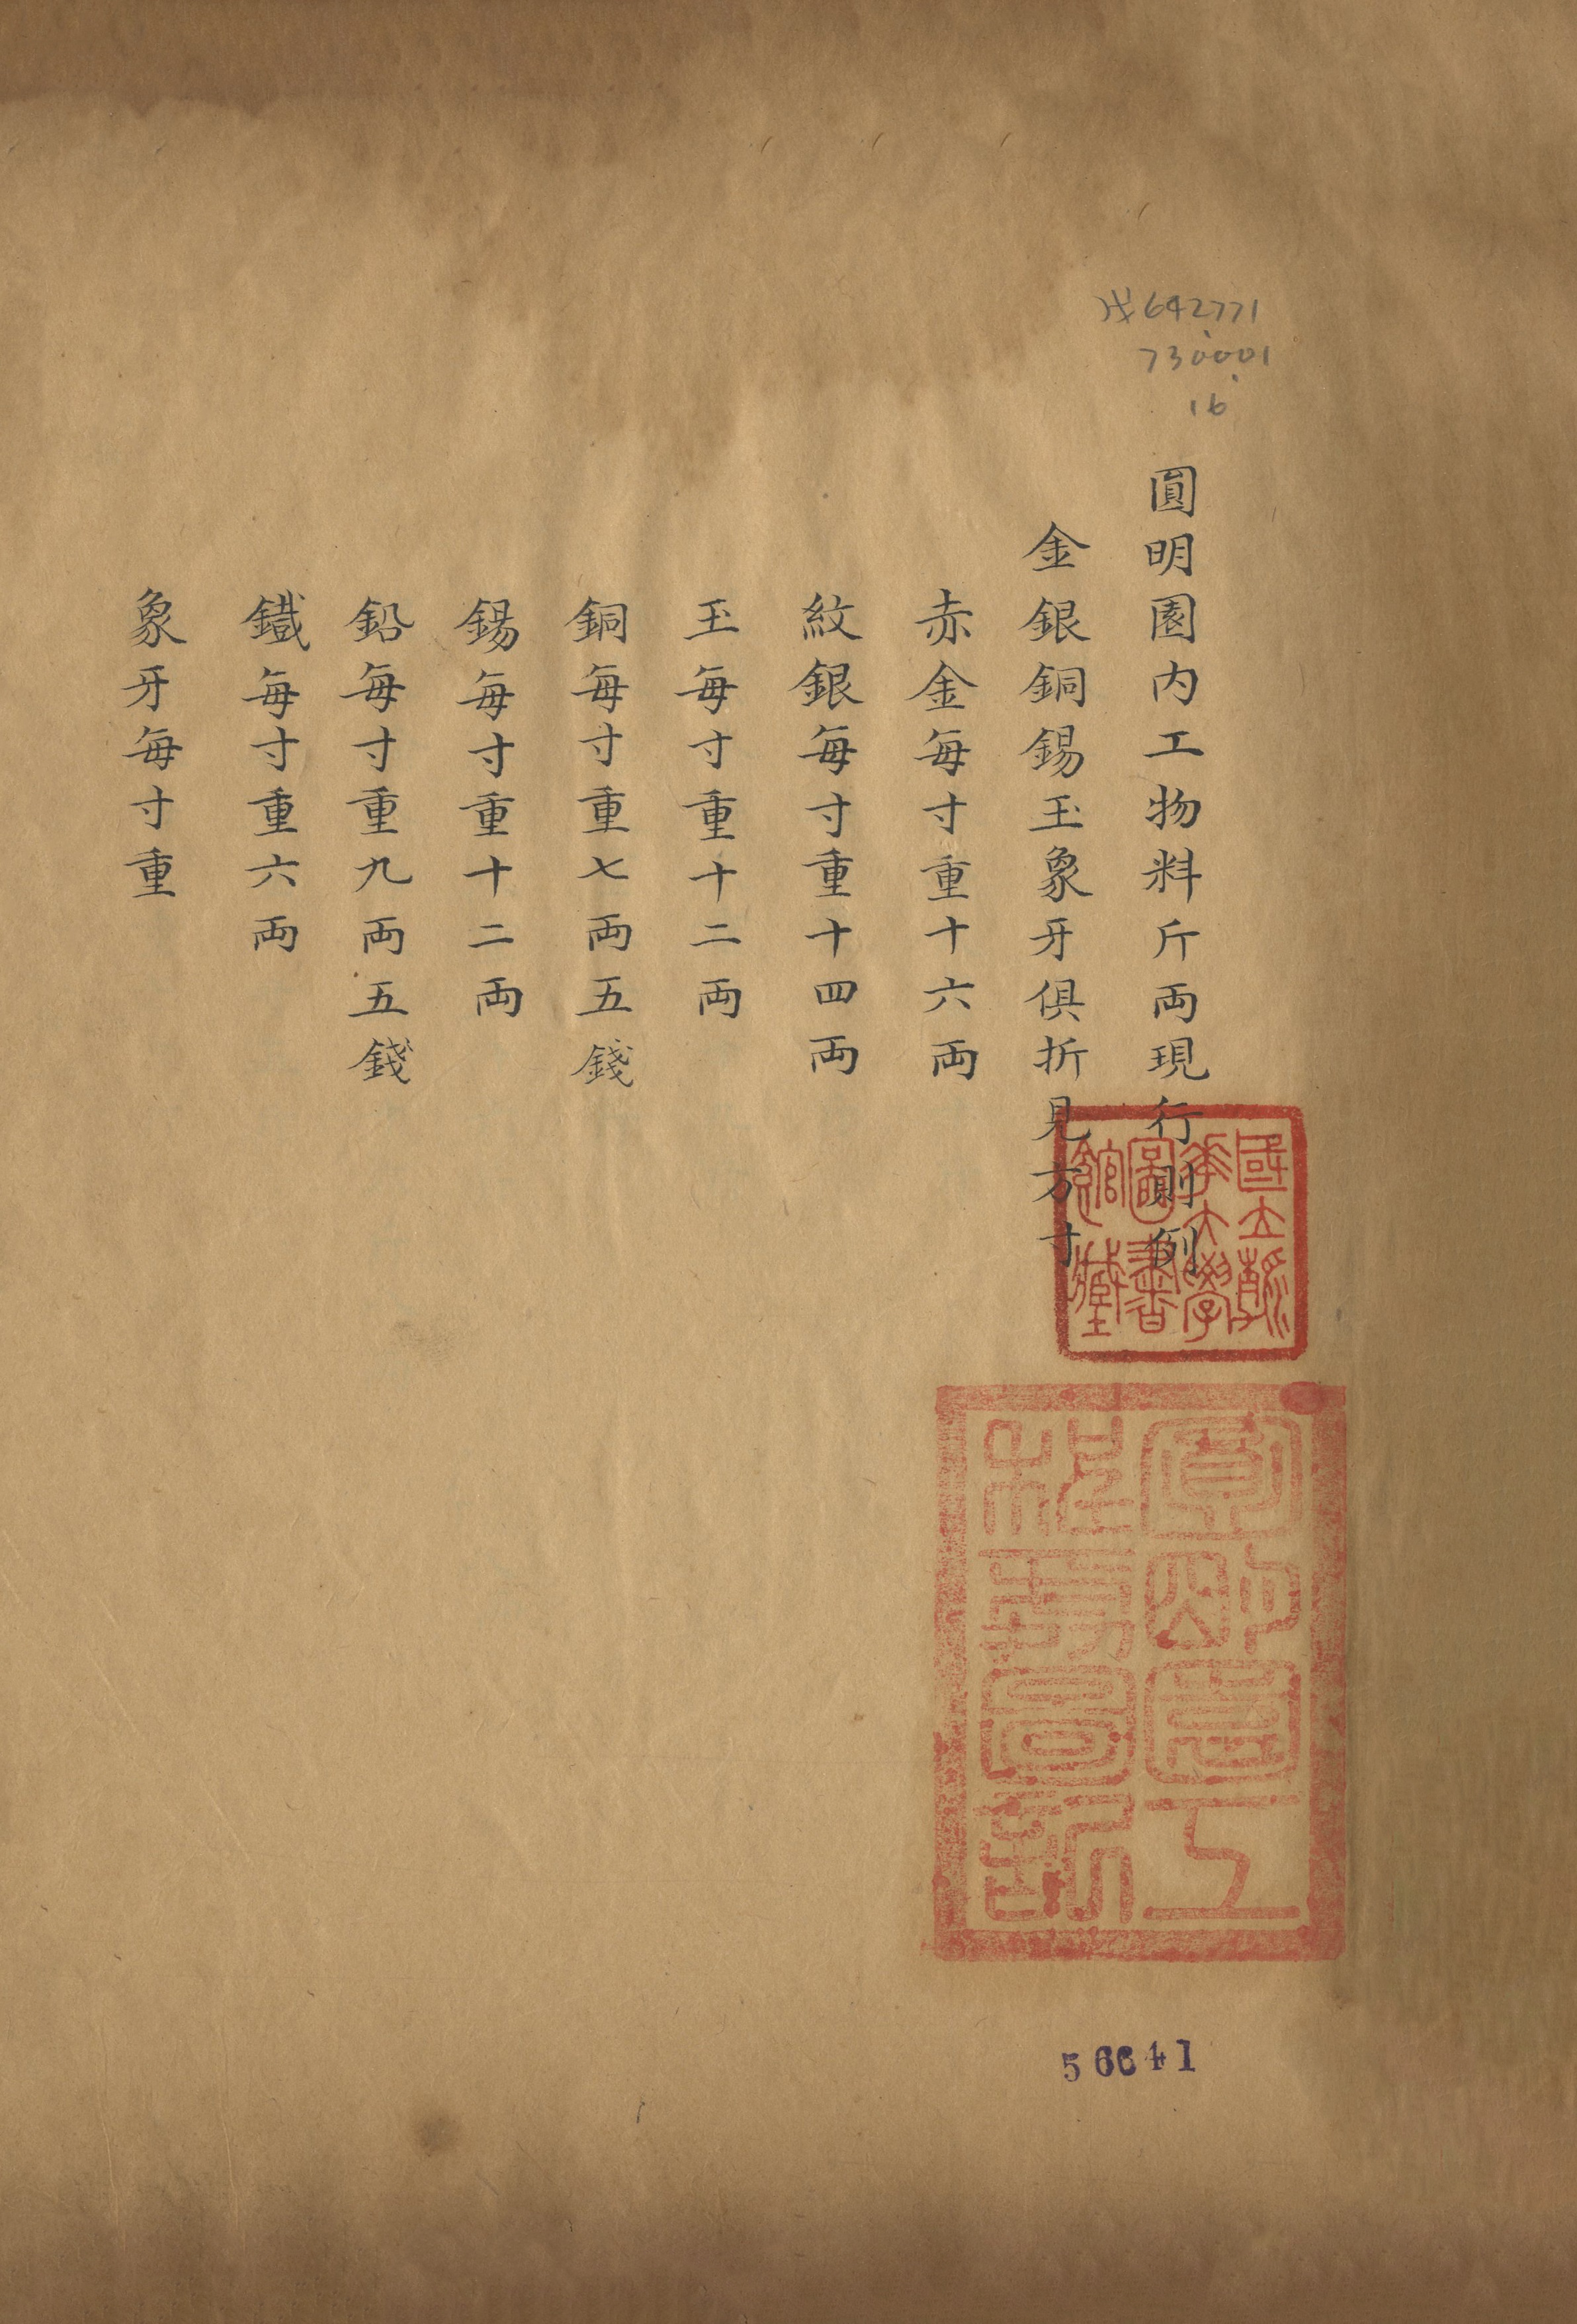 642771
730001
16
圓明園内工物料斤両現行則例
金銀銅錫玉象牙俱折見方寸
赤金每寸重十六両
紋銀每寸重十四両
玉每寸重十二両
銅每寸重七両五錢
錫每寸重十二両
鉛每寸重九両五錢
鐵每寸重六両
象牙每寸重
國立清
華大學
圖書
館藏
圓明園工
56641